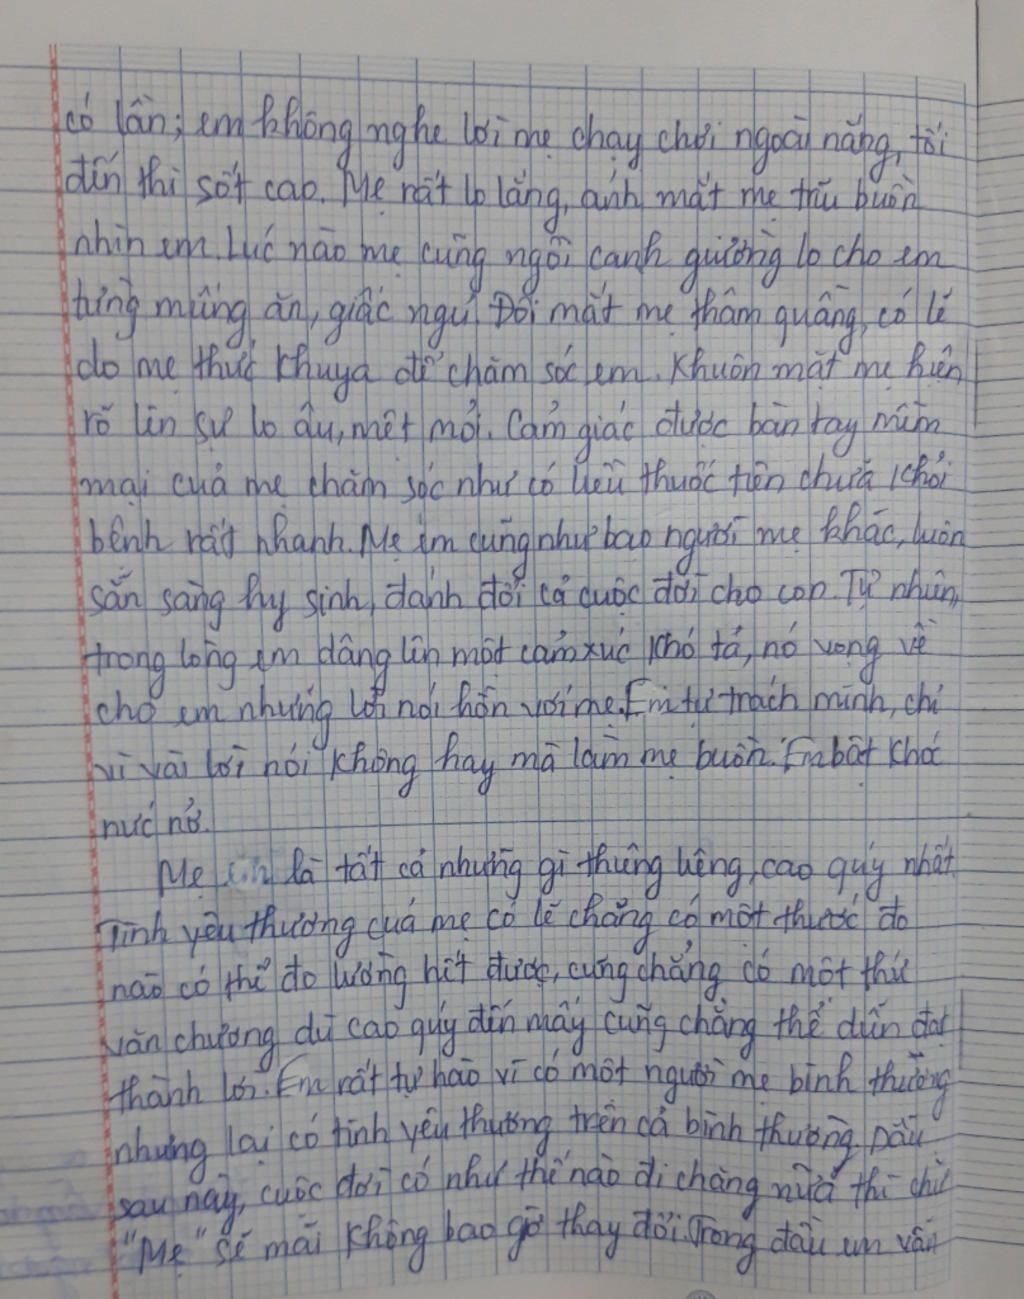 có lần, em không nghe lời mẹ chạy chơi ngoài nắng, tối
đến thì sốt cao. Mẹ rất lo lắng, ánh mắt mẹ trĩu buồn
nhìn em. Lúc nào mẹ cũng ngồi canh giường lo cho em
từng miếng ăn, giấc ngủ. Đôi mắt mẹ thâm quầng, có lẽ
do mẹ thức khuya để chăm sóc em. Khuôn mặt mẹ hiện
rõ lên sự lo âu, mệt mỏi. Cảm giác được bàn tay mềm
mại của mẹ chăm sóc như có liều thuốc tiên chữa khỏi
bệnh rất nhanh. Mẹ em cũng như bao người mẹ khác, luôn
sẵn sàng hy sinh, đánh đổi cả cuộc đời cho con. Tự nhiên,
trong lòng em dâng lên một cảm xúc khó tả, nó vọng về
cho em những lời nói hỗn với mẹ. Em tự trách mình, chỉ
vì vài lời nói không hay mà làm mẹ buồn. Em bật khóc
nức nở.
Mẹ em là tất cả những gì thiêng liêng, cao quý nhất.
Tình yêu thương của mẹ có lẽ chẳng có một thước đo
nào có thể đo lường hết được, cũng chẳng có một thứ
văn chương dù cao quý đến mấy cũng chẳng thể diễn đạt
thành lời. Em rất tự hào vì có một người mẹ bình thường
nhưng lại có tình yêu thương trên cả bình thường. Dẫu
sau này, cuộc đời có như thế nào đi chăng nữa thì chữ
"Mẹ" sẽ mãi không bao giờ thay đổi. Trong đầu em vẫn